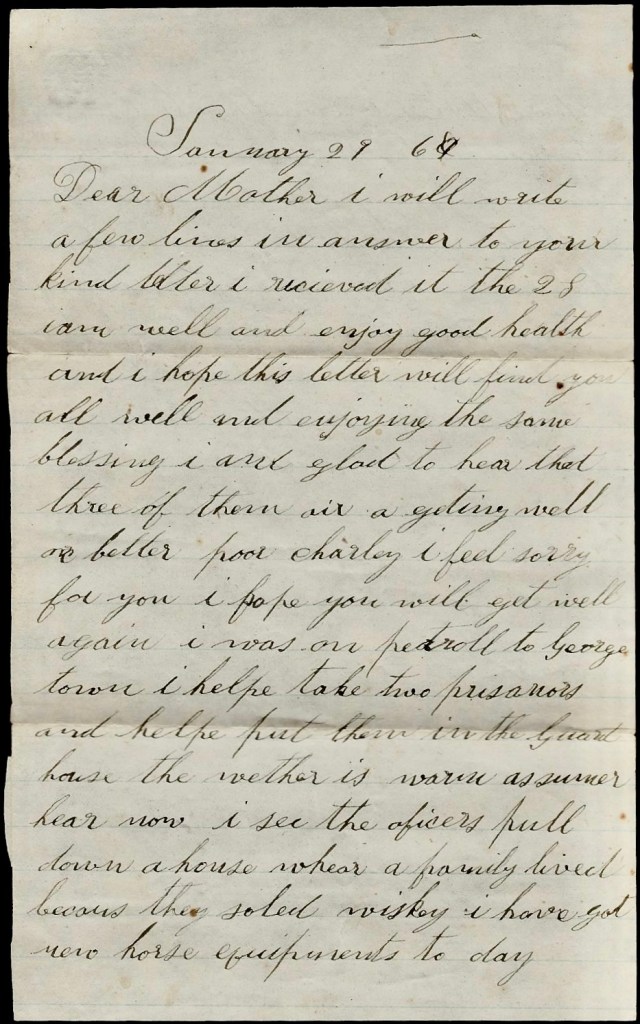 January 29 64
Dear Mother i will write
a few lines in answer to your
kind letter i recieved it the 28
i am well and enjoy good health
and i hope this letter will find you
all well and enjoying the same
blessing i am glad to hear that
three of them air a geting well
or better poor charley i feel sorry
for you i hope you will get well
again i was on petroll to George
town i helpe take two prisanors
and helpe put them in the Guard
house the wether is warm as sumer
hear now i see the oficers pull
down a house whear a family lived
becaus they soled wiskey i have got
new horse equipments to day